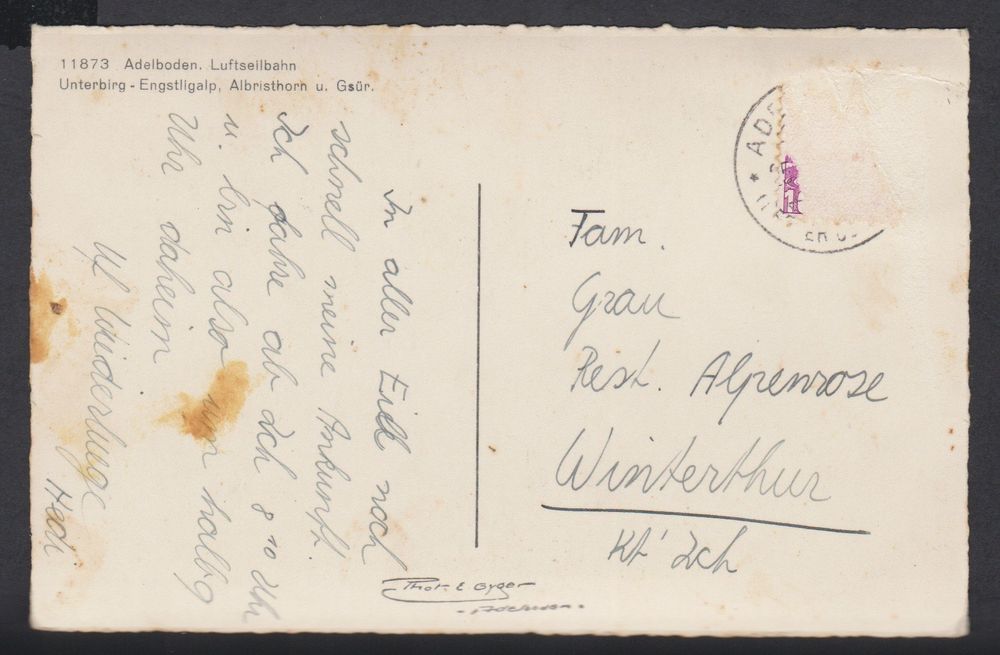 11873 Adelboden. Luftseilbahn
Unterbirg - Engstligalp, Albristhorn u. Gsür.
In aller Eile noch
schnell meine Ankunft.
Ich fahre ab Zch 8 10 Uhr
u. bin also um halb 9
Uhr daheim
Hedi
Fam.
Grau
Rest. Alpenrose
Winterthur
Kt' Zch
Phot. E. Gyger
Adelboden